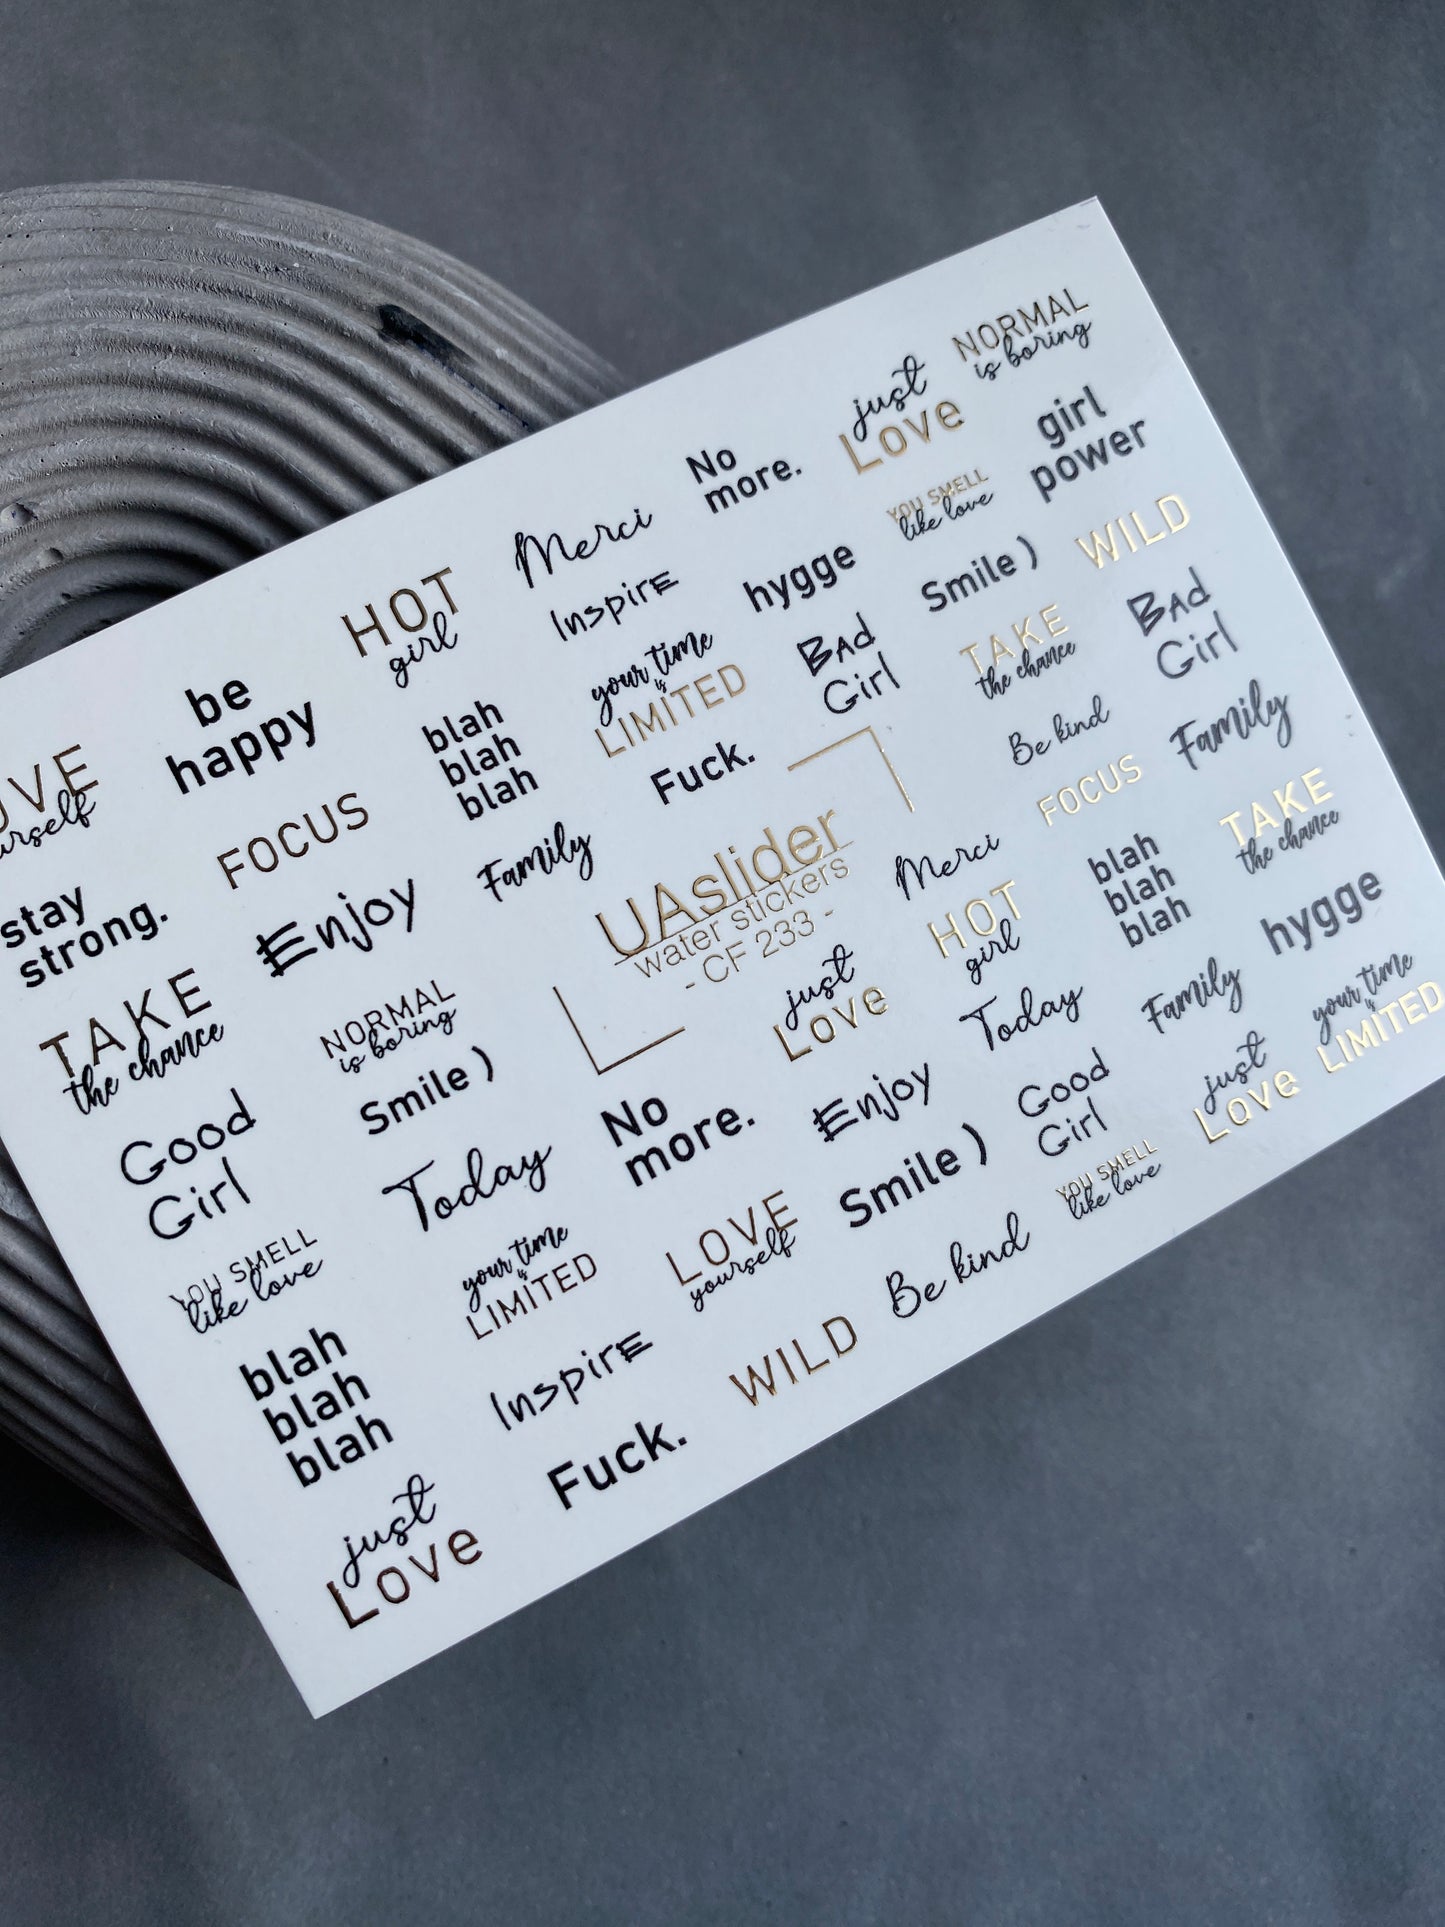 NORMAL
is boring
just
Love
girl
power
No
more.
YOU SMELL
like love
WILD
Merci
hygge
Smile )
BAd
Girl
HOT
girl
Inspire
your time
is
LIMITED
BAd
Girl
TAKE
the chance
Family
be
happy
blah
blah
blah
Fuck.
Be kind
TAKE
the chance
FOCUS
Family
UAslider
water stickers
- CF 233 -
Merci
FOCUS
blah
blah
blah
hygge
stay
strong.
Enjoy
HOT
girl
Family
your time
is
LIMITED
TAKE
the chance
NORMAL
is boring
just
Love
Today
just
Love
Good
Girl
Smile )
No
more.
Enjoy
Good
Girl
YOU SMELL
like love
Today
LOVE
yourself
Smile )
YOU SMELL
like love
your time
is
LIMITED
Be kind
blah
blah
blah
Inspire
WILD
just
Love
Fuck.